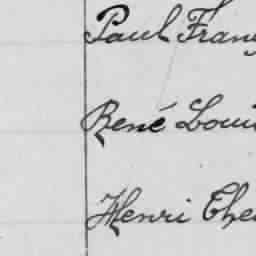 Paul Franç
René Loui
Henri Thé